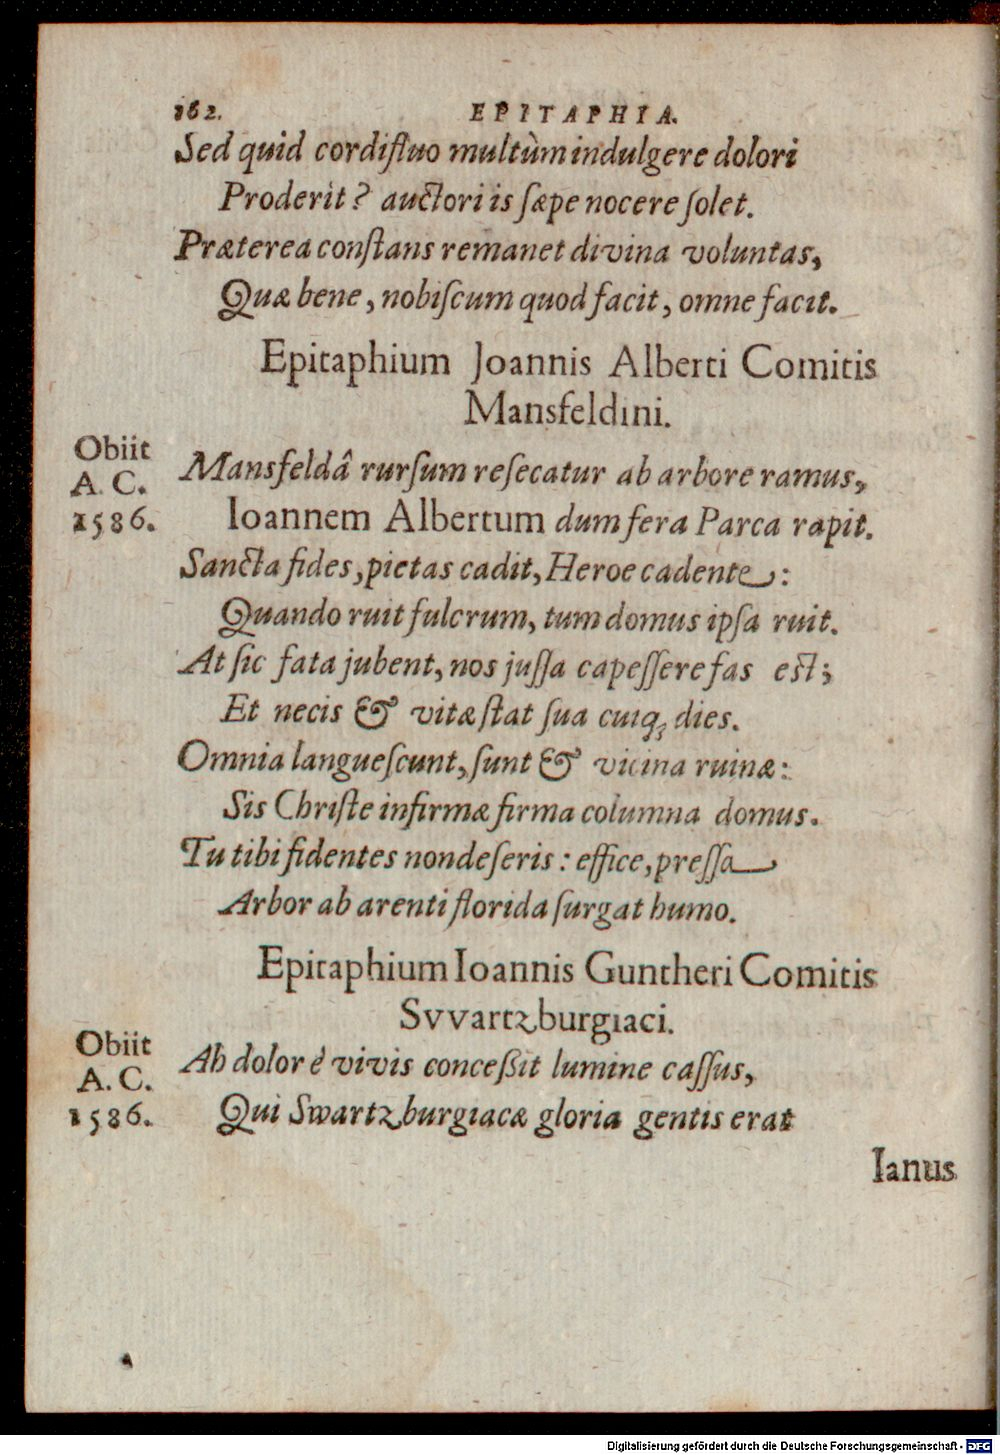 162. EPITAPHIA.
Sed quid cordifluo multùm indulgere dolori
Proderit? auctori is sæpe nocere solet.
Præterea constans remanet divina voluntas,
Quæ bene, nobiscum quod facit, omne facit.
Epitaphium Joannis Alberti Comitis
Mansfeldini.
Obiit
A. C.
1586.
Mansfeldâ rursum resecatur ab arbore ramus,
Ioannem Albertum dum fera Parca rapit.
Sancta fides, pietas cadit, Heroe cadente:
Quando ruit fulcrum, tum domus ipsa ruit.
At sic fata jubent, nos jussa capessere fas est;
Et necis & vitæ stat sua cuiq; dies.
Omnia languescunt, sunt & vicina ruinæ:
Sis Christe infirmæ firma columna domus.
Tu tibi fidentes non deseris: effice, pressa
Arbor ab arenti florida surgat humo.
Epitaphium Ioannis Guntheri Comitis
Svvartzburgiaci.
Obiit
A. C.
1586.
Ah dolor é vivis conceßit lumine cassus,
Qui Swartzburgiacæ gloria gentis erat
Ianus
Digitalisierung gefördert durch die Deutsche Forschungsgemeinschaft - DFG